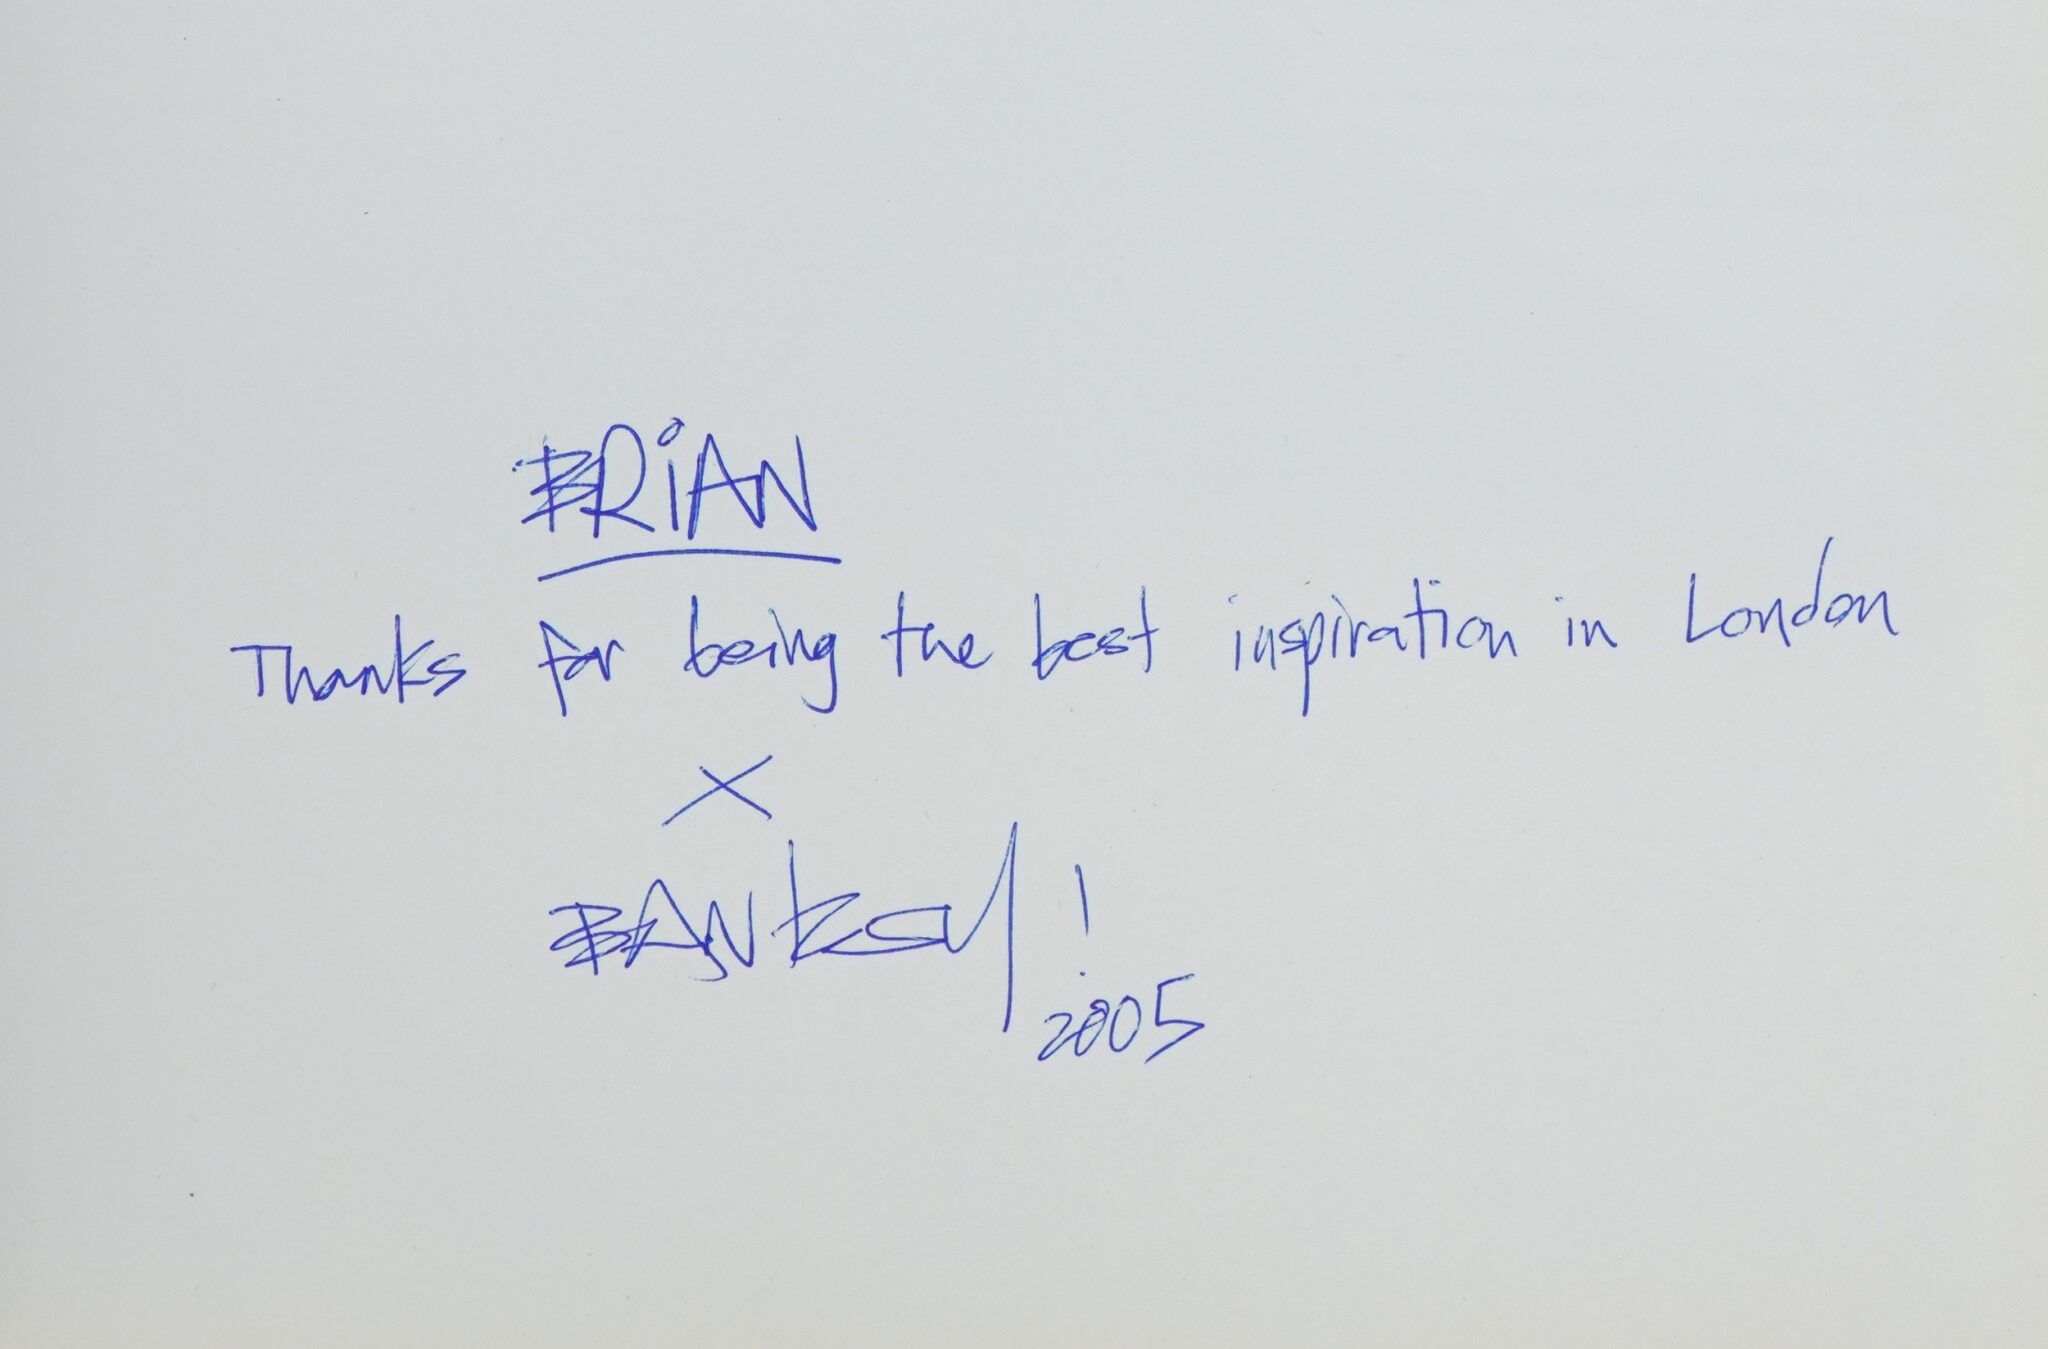 BRiAN
Thanks for being the best inspiration in London
X
BANKSY!
2005